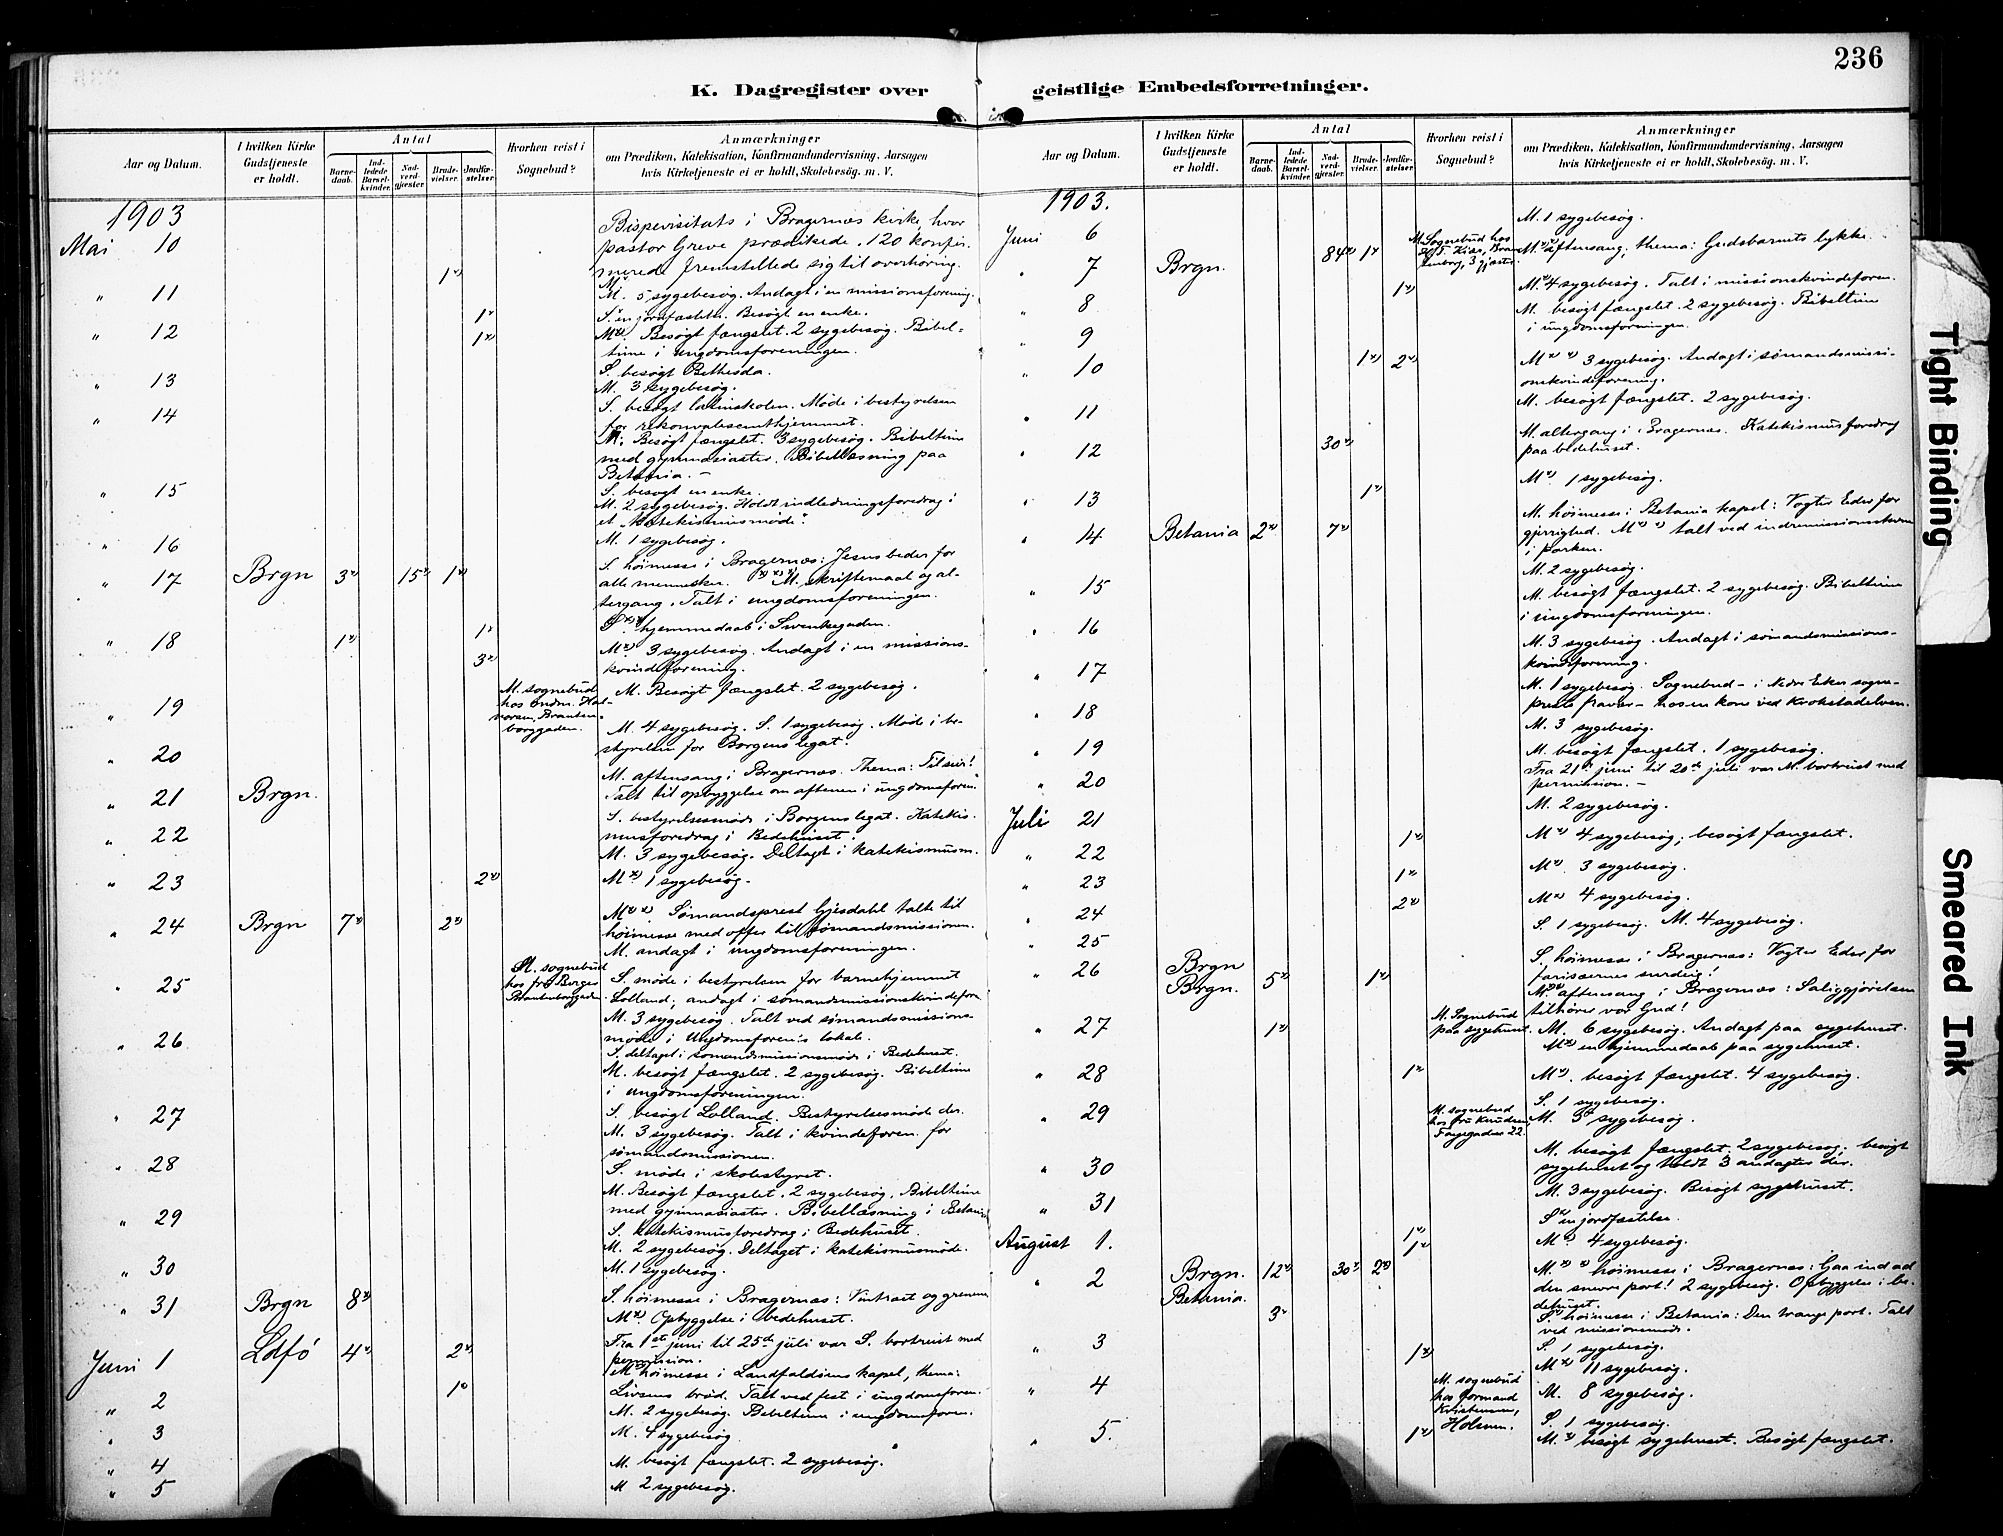 236
K. Dagregister over geistlige Embedsforretninger.
Aar og Datum. I hvilken Kirke Gudstjeneste er holdt. Antal Barne-daab. Ind-ledede Barsel-kvinder. Nad-verd-gjæster Brude-vielser. Jordfæ-stelser Hvorhen reist i Sognebud? Anmærkninger
om Prædiken, Katekisation, Konfirmandundervisning, Aarsagen
hvis Kirketjeneste ei er holdt, Skolebesög. m. V.
1903
Mai 10 Bispevisitats i Bragernæs kirke, hvor
pastor Greve prædikede. 120 konfir-
merede fremstillede sig til overhöring.
1
" 11 M. 5 sygebesøg. Andagt i en missionsforening.
S. en jordfæstelse. Besøgt en enke.
1
" 12 M. Besøgt fængslet. 2 sygebesøg. Bibel-
time i ungdomsforeningen.
1
" 13 S. besøgt Bethesda.
M. 3 sygebesøg.
" 14 S. besøgt latinskolen. Møde i bestyrelsen
for rekonvalesenthjemmet.
M. Besøgt fængslet. 3 sygebesøg. Bibeltime
med gymnasiaster. Bibellæsning paa
Betania. -
" 15 S. besøgt en enke.
M. 2 sygebesøg. Holdt indledningsforedrag i
et "katekismusmøde".
" 16 M. 1 sygebesøg.
" 17 Brgn 3 15 1 S. høimesse i Bragernæs: Jesus beder for
alle mennesker. M. skriftemaal og al-
tergang. Talt i ungdomsforeningen.
" 18 1 1 S. hjemmedaab i Svenkegaden.
3 M. 3 sygebesøg. Andagt i en missions-
kvindeforening.
" 19 M. sognebud
hos
borggaden.
M. Besøgt fængslet. 2 sygebesøg.
" 20 M. 4 sygebesøg. S. 1 sygebesøg. Møde i be-
styrelsen for Borgens legat.
" 21 Brgn. M. aftensang i Bragernæs. Thema: Til seier!
Talt til opbyggelse om aftenen i ungdomsforen.
" 22 S. bestyrelsesmøde i Borgens legat. Katekis-
musforedrag i Bedehuset.
M. 3 sygebesøg. Deltagt i katekismusm.
" 23 2 M. 1 sygebesøg.
" 24 Brgn 7 2 M. Sømandsprest Gjesdahl talte til
høimesse med offer til sømandsmissionen.
M. andagt i ungdomsforeningen.
" 25 M. sognebud
hos fru Berger
Brantenborggaden
S. møde i bestyrelsen for barnehjemmet
Lolland; andagt i sømandsmissionskvindeforen
" 26 M. 3 sygebesøg. Talt ved sømandsmissions-
møde i Ungdomsforen.s lokale.
S. deltaget i sømandsmissionsmøde i Bedehuset.
M. besøgt fængslet. 2 sygebesøg. Bibeltime
i ungdomsforeningen.
" 27 S. besøgt Lolland. Bestyrelsesmøde der.
M. 3 sygebesøg. Talt i kvindeforen. for
sømandsmissionen.
" 28 S. møde i skolestyret.
M. Besøgt fængslet. 2 sygebesøg. Bibeltime
" 29 med gymnasiaster. Bibellæsning i Betania
S. katekismusforedrag i Bedehuset.
M. 2 sygebesøg. Deltaget i katekismusmøde.
" 30 M. 1 sygebesøg.
" 31 Brgn 8 S. høimesse i Bragernæs: Vintræet og grenene
M. Opbyggelse i bedehuset.
Fra 1ste juni til 25de juli var S. bortreist med
permission.
Juni 1 Ldfö 4 2 M. høimesse i Landfaldøens kapel, thema:
Livsens brød. Talt ved fest i ungdomsforen.
" 2 1 M. 2 sygebesøg. Bibeltime i ungdomsforen.
" 3 M. 4 sygebesøg
" 4 M. besøgt fængslet. 2 sygebesøg.
" 5 M 2 sygebesøg.
Aar og Datum. I hvilken Kirke Gudstjeneste er holdt. Antal Barne-daab. Ind-ledede Barsel-kvinder. Nad-verd-gjæster Brude-vielser. Jordfæ-stelser Hvorhen reist i Sognebud? Anmærkninger
om Prædiken, Katekisation, Konfirmandundervisning, Aarsagen
hvis Kirketjeneste ei er holdt, Skolebesög. m. V.
1903.
Juni 6 M. 1 sygebesøg.
" 7 Brgn. 84 1 M. Sognebud hos
3 gjæster
M. aftensang; thema: Gudsbarnets lykke.
" 8 1 M. 4 sygebesøg. Talt i missionskvindeforen.
" 9 M. besøgt fængslet. 2 sygebesøg. Bibeltime
i ungdomsforeningen.
" 10 1 2 M. 3 sygebesøg. Andagt i sømandsmissi-
onskvindeforening.
" 11 M. besøgt fængslet. 2 sygebesøg.
" 12 30 M. altergang i Bragernæs. Katekismusforedrag
paa bedehuset.
" 13 1 M. 1 sygebesøg.
" 14 Betania 2 7 M. høimesse i Betania kapel: Vogter Eder for
gjerrighed. M. talt ved indremissionsstevne
i parken.
" 15 M. 2 sygebesøg.
" 16 M. besøgt fængslet. 2 sygebesøg. Bibeltime
i ungdomsforeningen.
" 17 M. 3 sygebesøg. Andagt i sømandsmissions-
kvindeforening.
" 18 M. 1 sygebesøg. Sognebud - i Nedre Eker sogne-
prests fravær - hos en kone ved Krokstadelven.
" 19 M. 3 sygebesøg.
" 20 M. besøgt fængslet. 1 sygebesøg.
Fra 21de juni til 20de juli var M. bortreist med
permission. -
Juli 21 M. 2 sygebesøg.
" 22 1 M. 4 sygebesøg; besøgt fængslet.
" 23 1 M. 3 sygebesøg.
" 24 2 M. 4 sygebesøg.
" 25 S. 1 sygebesøg. M. 4 sygebesøg.
" 26 Brgn S. høimesse i Bragernæs: Vogter Eder for
farisæernes surdeig!
Brgn. 5 1 M. aftensang i Bragernæs: Saliggjørelsen
tilhører vor Gud!
" 27 1 M. Sognebud
paa sygehuset.
M. 6 sygebesøg. Andagt paa sygehuset.
M. en hjemmedaab paa sygehuset.
" 28 1 M. besøgt fængslet. 4 sygebesøg.
" 29 M. sognebud
hos fru Knudsen,
22.
S. 1 sygebesøg.
M. 3 sygebesøg.
" 30 M. besøgt fængslet. 2 sygebesøg; besøgt
sygehuset og holdt 3 andagter der.
" 31 M. 3 sygebesøg. Besøgt sygehuset.
August 1. 1 S. en jordfæstelse.
1 M. 4 sygebesøg.
" 2 Brgn. 12 30 2 M. høimesse i Bragernæs: Gaa ind ad
den snevre port! 2 sygebesøg. Opbyggelse i be-
dehuset.
Betania. 3 S. høimesse i Betania: Den trange port. Talt
ved missionsmøde.
" 3 1 S. 1 sygebesøg.
M. 11 sygebesøg.
" 4 M. sognebud
hos formand
Kristensen,
Holmen.
M. 8 sygebesøg.
" 5. 1 S. 1 sygebesøg.
M. besøgt sygehuset. Besøgt fængslet.
Tight Binding
Smeared Ink